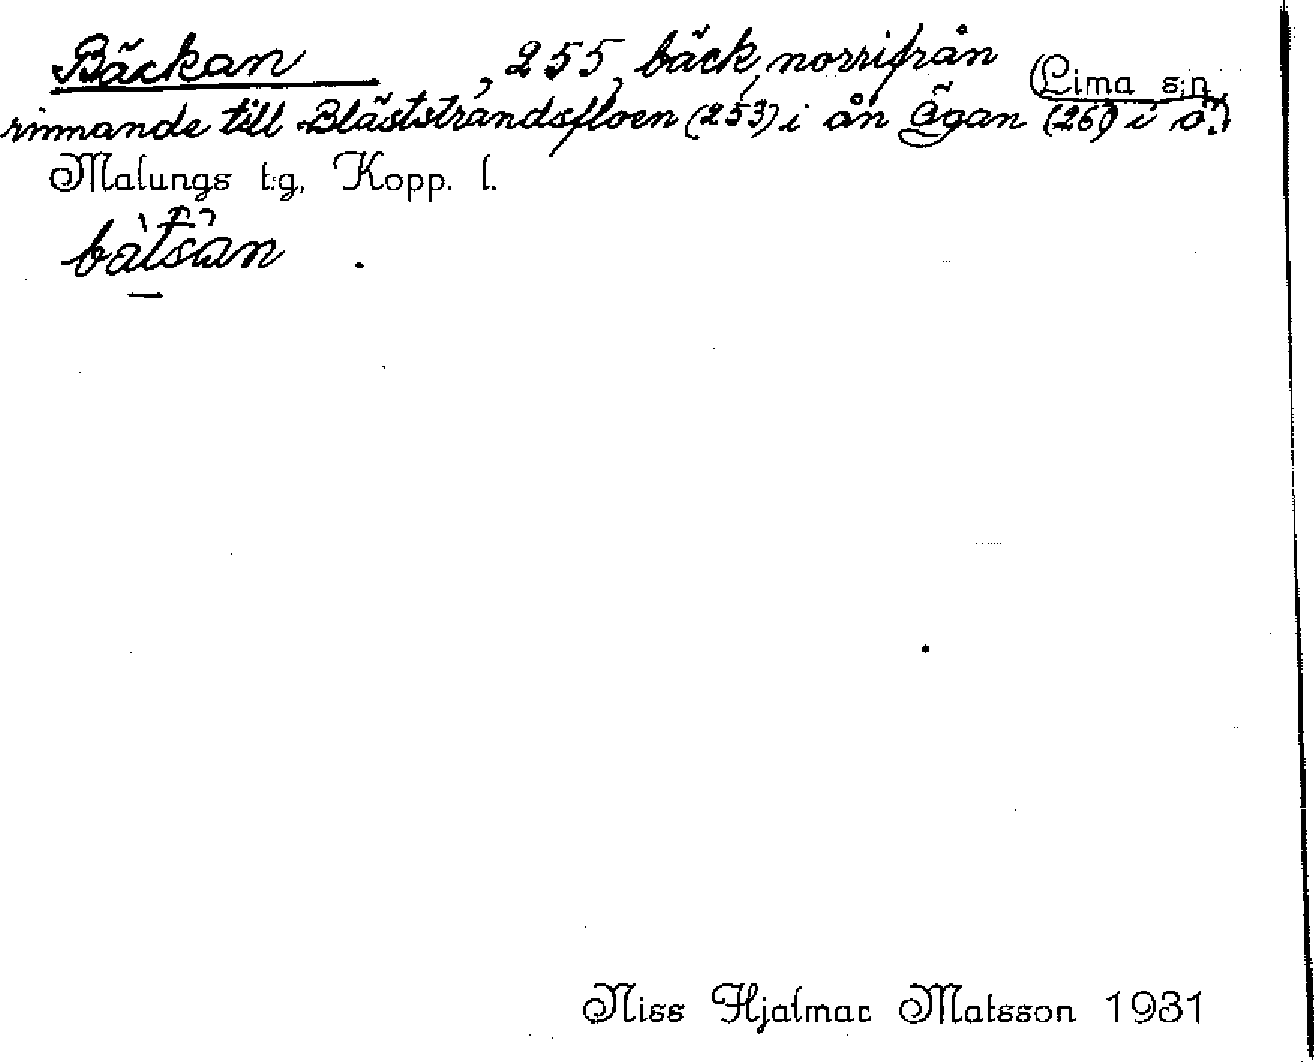 Bäckan, 255, bäck, norrifrån (Lima s:n,
rinnande till Bläststrandsfloen (253) i ån Ägan (26) i ö.)
Malungs t:g, Kopp. l.
Niss Hjalmar Matsson 1931